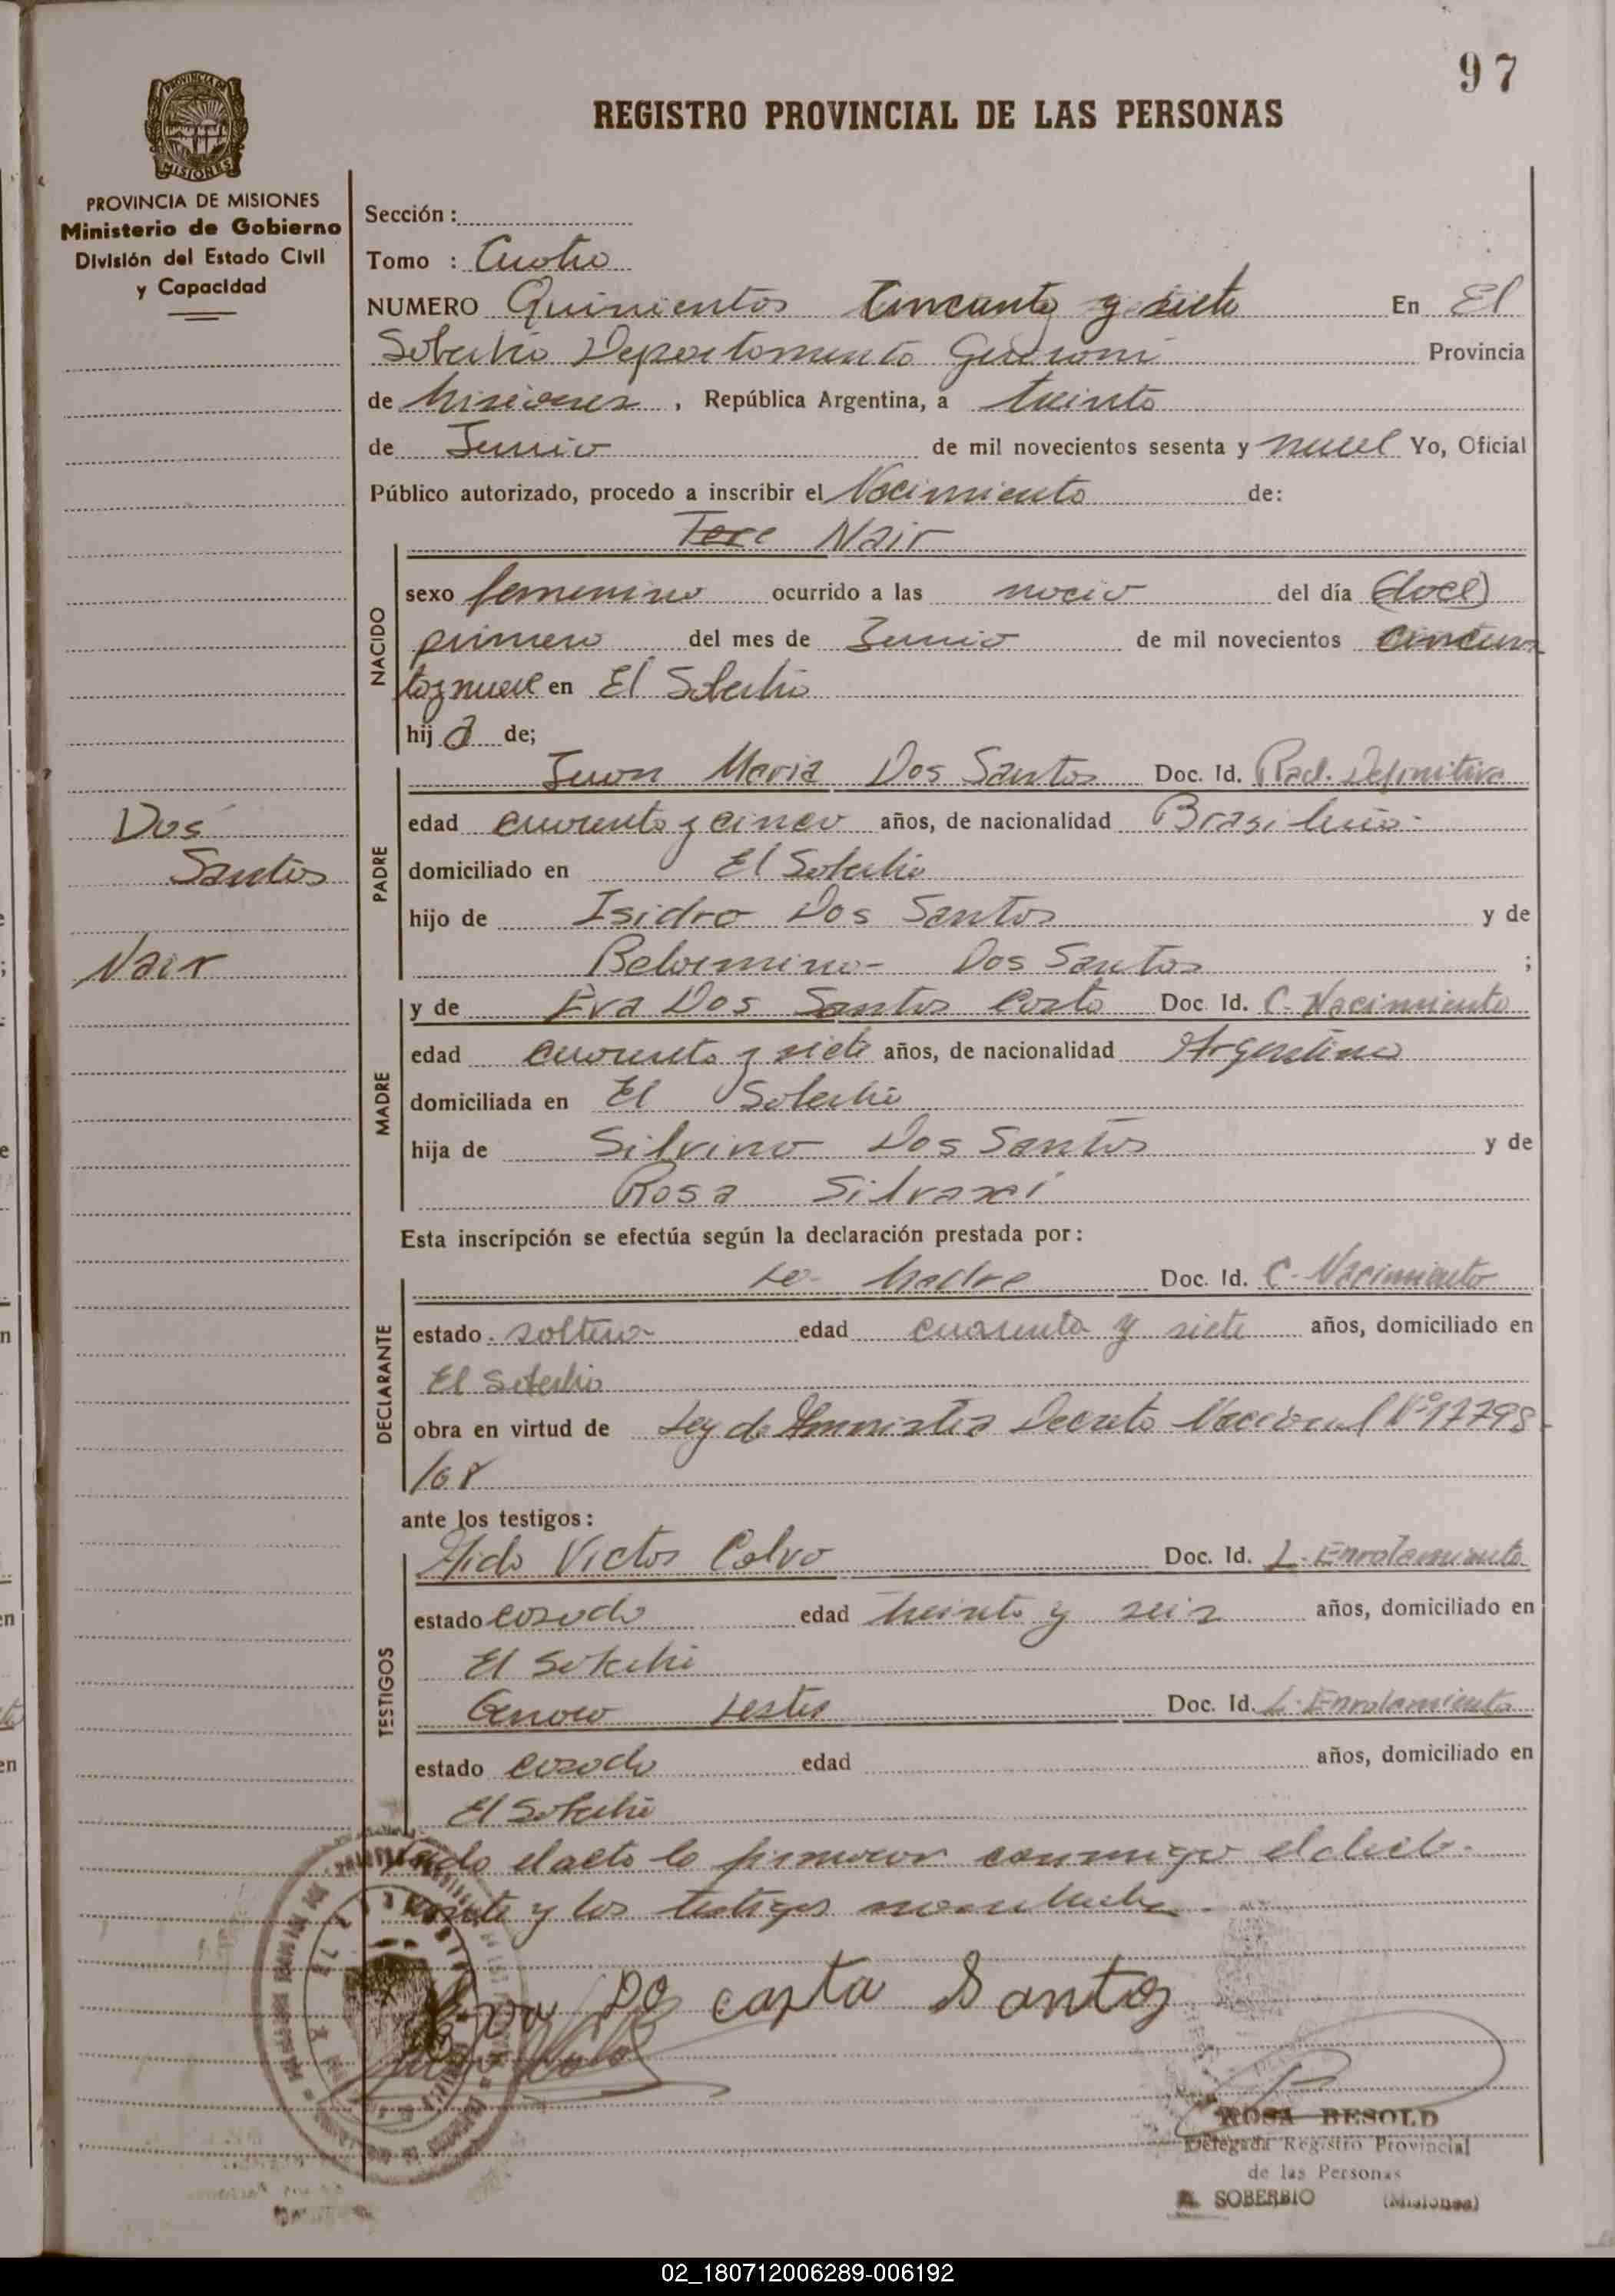 97
REGISTRO PROVINCIAL DE LAS PERSONAS
PROVINCIA DE MISIONES
MISIONES
PROVINCIA DE MISIONES
Ministerio de Gobierno
División del Estado Civil
y Capacidad
Sección :
Tomo : Cuatro
NUMERO Quinientos Cincuenta y siete En El
Soberbio Departamento Guaraní Provincia
de Misiones , República Argentina, a treinta
de Junio de mil novecientos sesenta y nueve Yo, Oficial
Público autorizado, procedo a inscribir el Nacimiento de:
Nair
NACIDO
sexo femenino ocurrido a las del día (doce)
primero del mes de Junio de mil novecientos cincuen
ta y nueve en El Soberbio
hij a de;
PADRE
Juan Maria Dos Santos Doc. Id. Rad. Definitiva
edad cuarenta y cinco años, de nacionalidad Brasileño
domiciliado en El Soberbio
hijo de Isidro Dos Santos y de
Belarmina Dos Santos ;
Dos
Santos
Nair
MADRE
y de Eva Dos Santos Costa Doc. Id. C. Nacimiento
edad cuarenta y siete años, de nacionalidad Argentina
domiciliada en El Soberbio
hija de Silvino Dos Santos y de
Rosa
Esta inscripción se efectúa según la declaración prestada por :
DECLARANTE
la Madre Doc. Id. C. Nacimiento
estado soltera edad cuarenta y siete años, domiciliado en
El Soberbio
obra en virtud de Ley de Amnistia Decreto Nacional Nº 17798
/68
ante los testigos :
TESTIGOS
Victor Calvo Doc. Id. L. Enrolamiento
estado casado edad treinta y seis años, domiciliado en
El Soberbio
Doc. Id. L. Enrolamiento
estado casado edad años, domiciliado en
El Soberbio
el acto lo firmaron conmigo el decla
rante y los testigos
Eva Do casta Santos
ROSA BESOLD
Delegada Registro Provincial
de las Personas
EL SOBERBIO (Misiones)
02_180712006289-006192